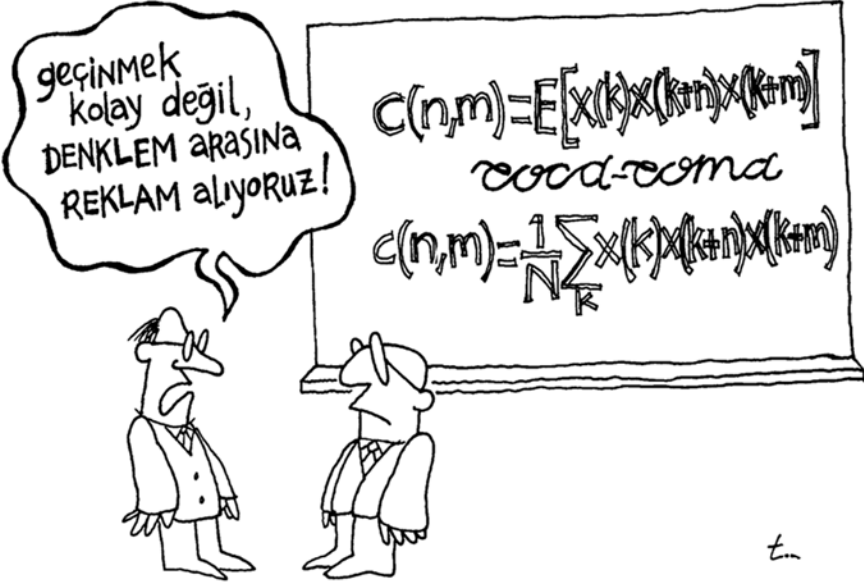 geçinmek
kolay değil,
DENKLEM ARASINA
REKLAM alıyoruz!
C(n,m)=E[x(k)x(k+n)x(k+m)]
coca-coma
C(n,m)=1/N ∑k x(k)x(k+n)x(k+m)
t...